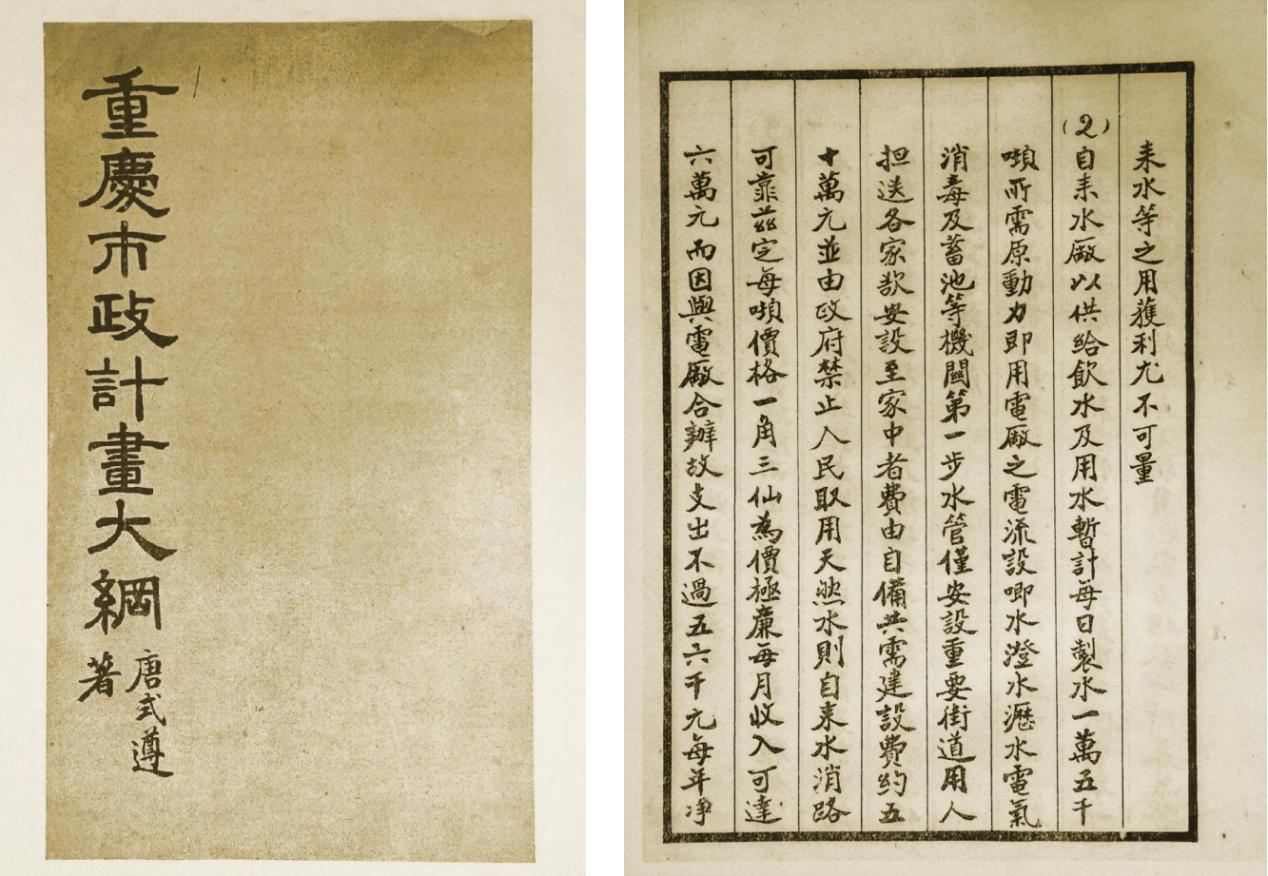 重慶市政計畫大綱
唐式遵
著
耒水等之用獲利尤不可量
(2)自耒水廠以供給飲水及用水暫計每日製水一萬五千
噸所需原動力即用電廠之電流設唧水澄水瀝水電氣
消毒及蓄池等機關第一步水管僅安設重要街道用人
担送各家欲安設至家中者費由自備共需建設費約五
十萬元並由政府禁止人民取用天然水則自耒水消路
可靠茲定每噸價格一角三仙為價極廉每月收入可達
六萬元而因與電廠合辦故支出不過五六千元每年净